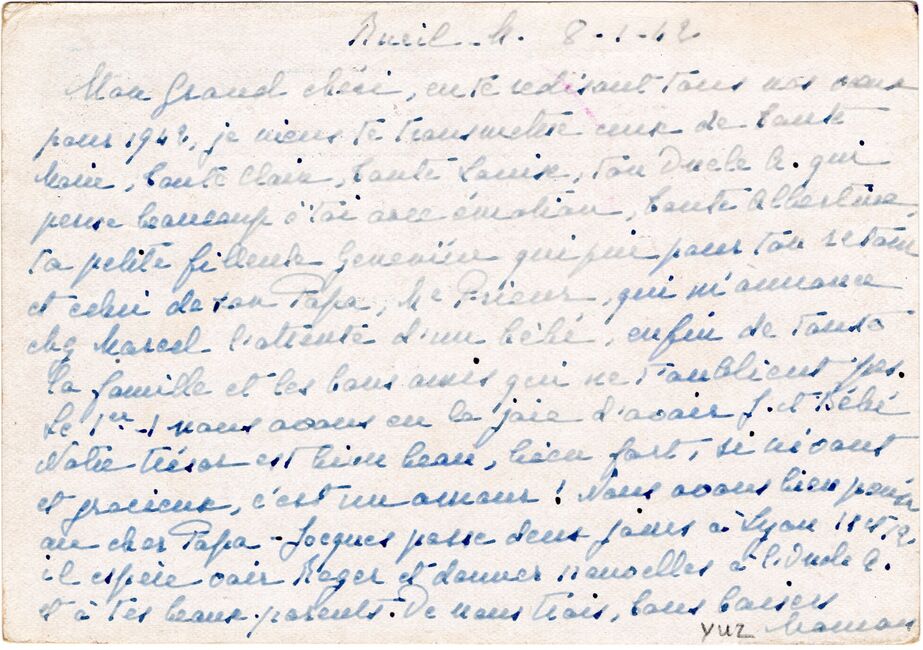 Rueil M. 8-1-42
Mon Grand chéri, en te redisant tous nos vœux
pour 1942, je viens te transmettre ceux de tante
Marie, tante Claire, tante Louise, ton Oncle A. qui
pense beaucoup à toi avec émotion, tante Albertine
ta petite filleule Geneviève qui prie pour ton retour
et celui de son Papa, Mr Prieur, qui m'annonce
chez Marcel l'attente d'un bébé, enfin de toute
la famille et les bons amis qui ne t'oublient pas.
Le 1er-1 nous avons eu la joie d'avoir J. et Bébé
Notre trésor est bien beau, bien fort, si vivant
et gracieux, c'est un amour ! Nous avons bien pensé
au cher Papa - Jacques passe deux jours à Lyon 11 et 12.
il espère voir Roger et donner nouvelles à l'Oncle A.
et à tes beaux-parents. De nous trois, bons baisers
Maman
YUZ